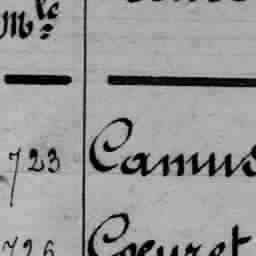 Mle
723 Camus
726 Coeuret